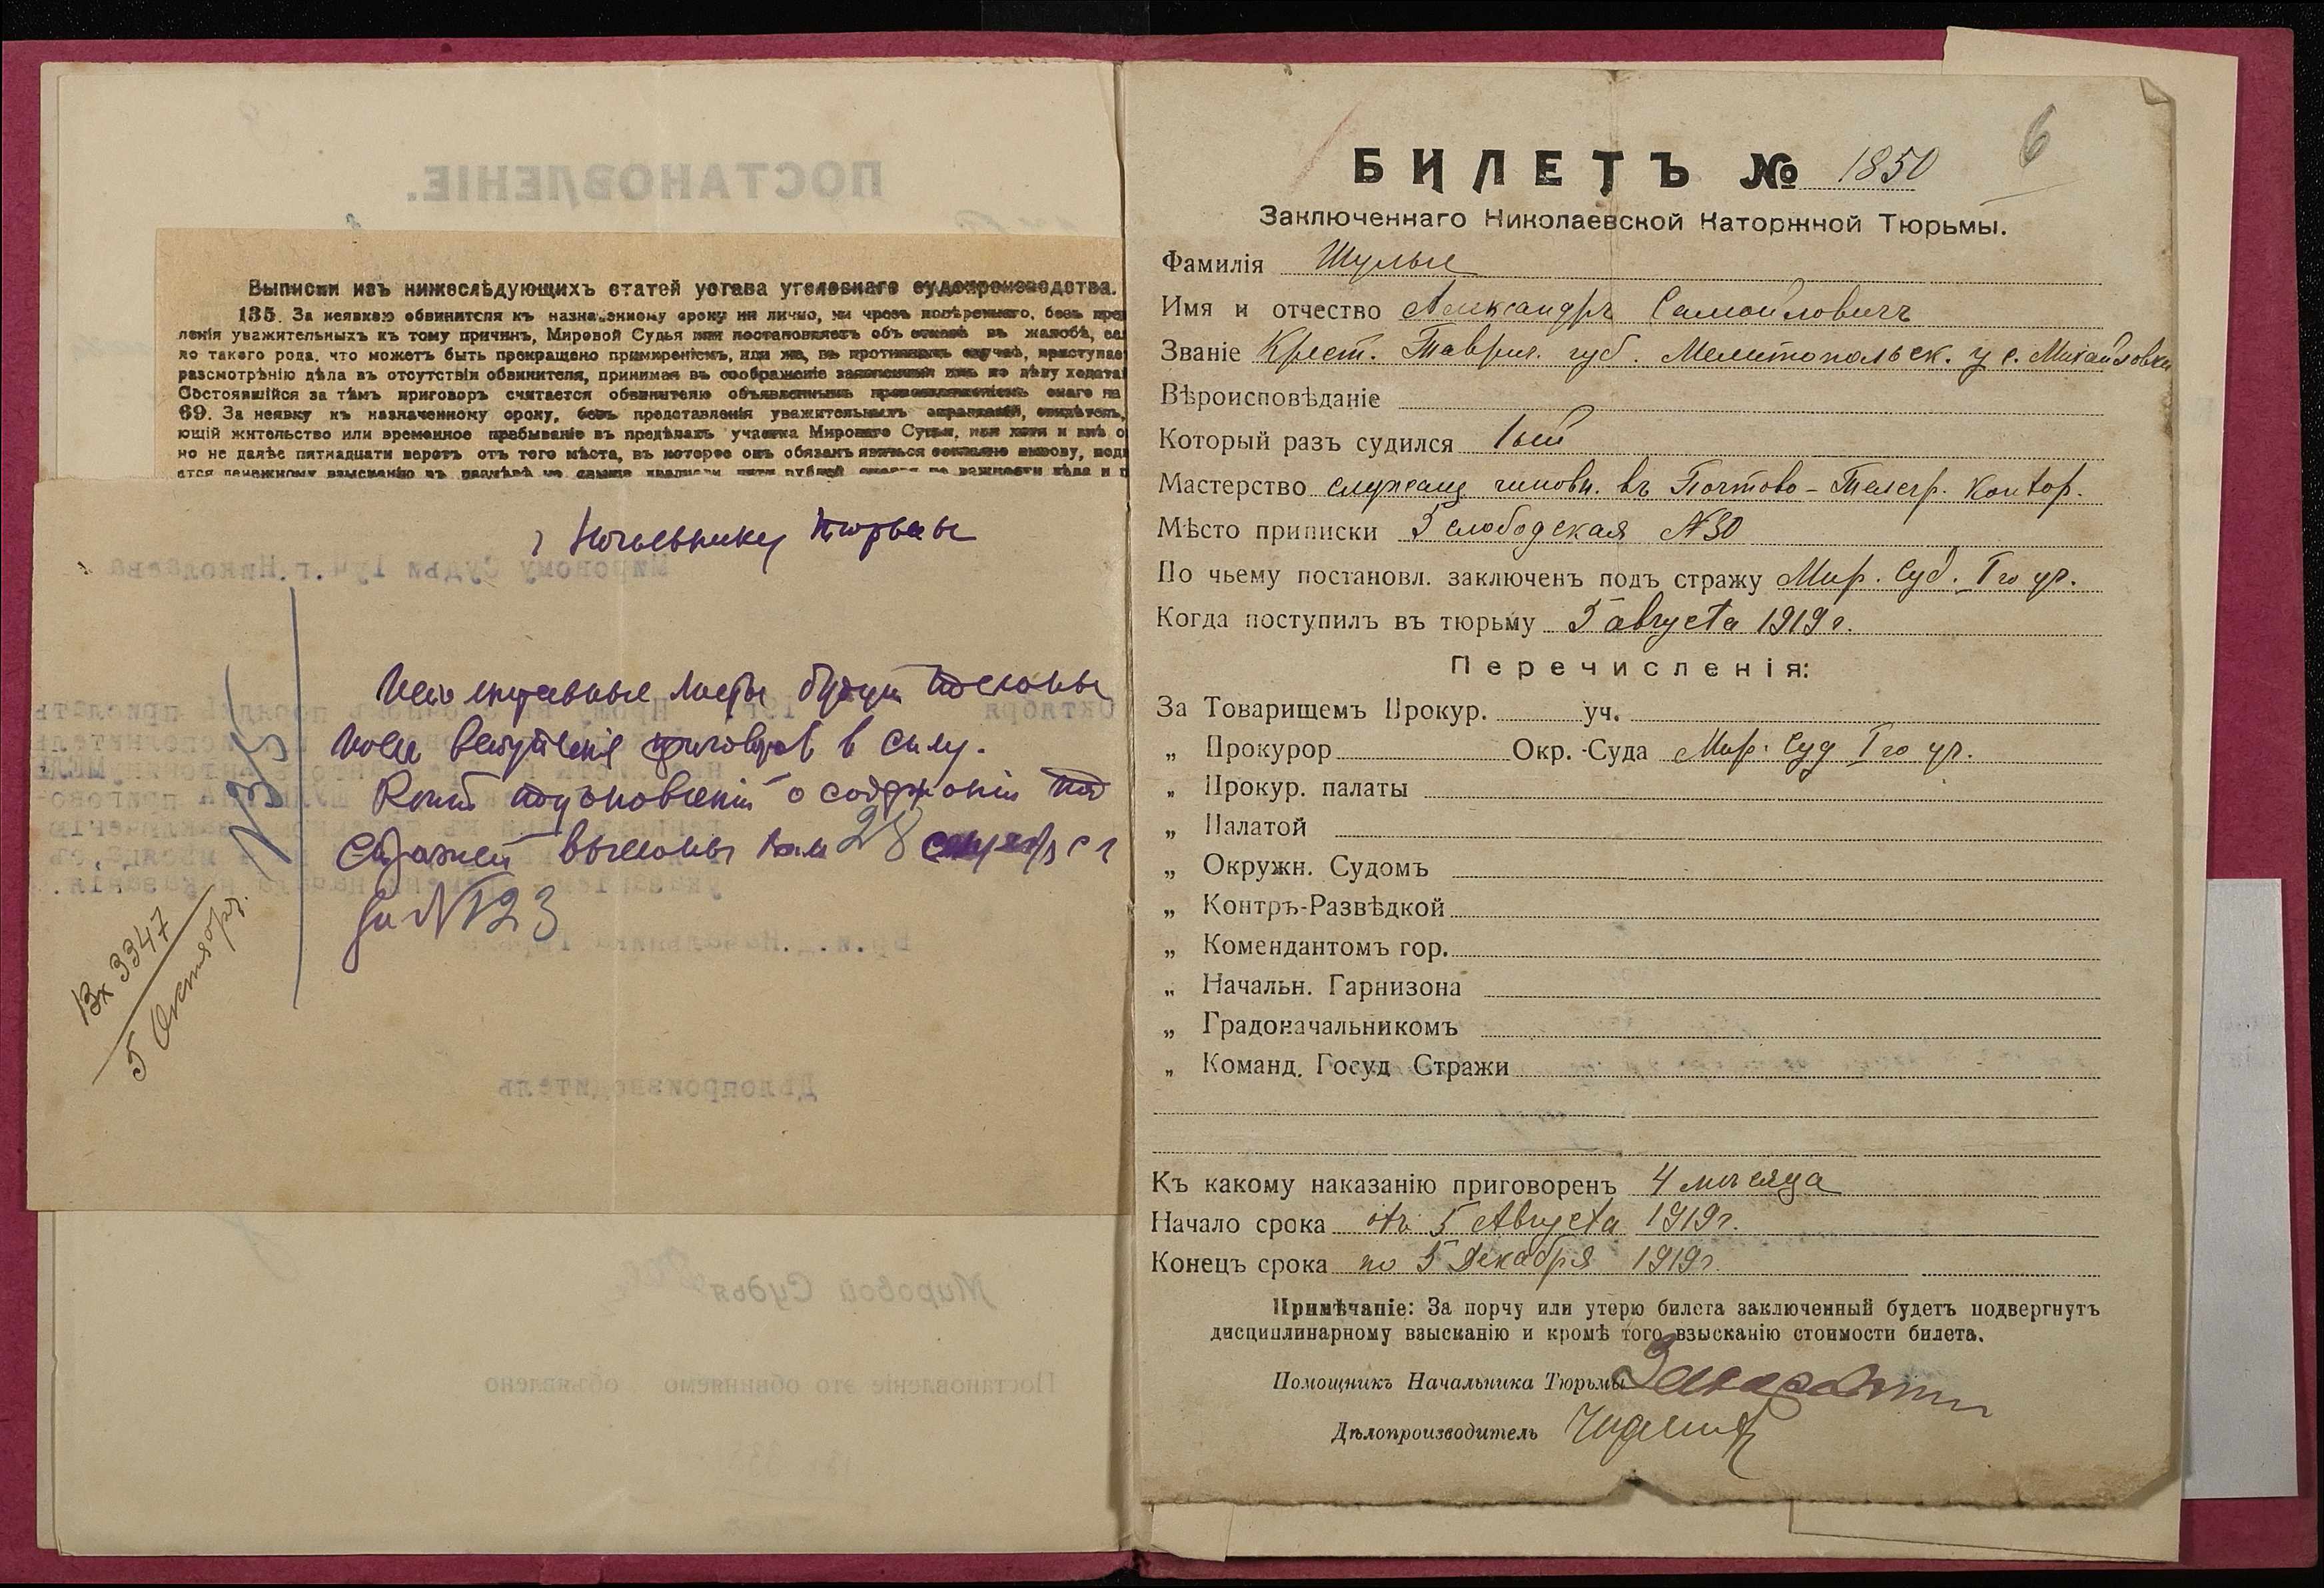 Выписки изъ нижеслѣдующихъ статей устава уголовнаго судопроизводства.
135. За неявкою обвинителя къ назначенному сроку ни лично, ни чрезъ повѣреннаго, безъ пред
ленія уважительныхъ къ тому причинъ, Мировой Судья или постановляетъ объ отказѣ въ жалобѣ, ес
ло такого рода, что можетъ быть прекращено примиреніемъ, или же, въ противномъ случаѣ, приступае
разсмотрѣнію дѣла въ отсутствіи обвинителя, принимая въ соображеніе заявленныя имъ по дѣлу ходата
Состоявшійся за тѣмъ приговоръ считается обвинителю объявленнымъ провозглашеніемъ онаго на
69. За неявку къ назначенному сроку, безъ представленія уважительныхъ оправданій, свидѣтель,
ющій жительство или временное пребываніе въ предѣлахъ участка Мироваго Судьи, или хотя и внѣ о
но не далѣе пятнадцати верстъ отъ того мѣста, въ которое онъ обязанъ явиться согласно вызову, под
ется денежному взысканію въ размѣрѣ не свыше двадцати пяти рублей смотря по важности дѣла и
Начальнику тюрьмы
Исполнительные листы будут посланы
после вступленія приговоров в силу.
Копіи постановленій о содержаніи под
стражей высланы вам 28 сентября с г
за № 123
135
Вх 3347
5 Октябр.
6
БИЛЕТЪ № 1850
Заключеннаго Николаевской Каторжной Тюрьмы.
Фамилія Шульц
Имя и отчество Александръ Самойловичъ
Званіе Крест. Таврич. губ. Мелитопольск. у с. Михайловки
Вѣроисповѣданіе
Который разъ судился 1ый
Мастерство служащ чиновн. въ Почтово-Телегр. контор.
Мѣсто приписки 5 слободская № 30
По чьему постановл. заключенъ подъ стражу Мир. Суд. I го уч.
Когда поступилъ въ тюрьму 5 августа 1919 г.
Перечисленія:
За Товарищемъ Прокур. уч.
„ Прокурор Окр. Суда Мир. Суд I го уч.
„ Прокур. палаты
„ Палатой
„ Окружн. Судомъ
„ Контръ-Развѣдкой
„ Комендантомъ гор.
„ Начальн. Гарнизона
„ Градоначальникомъ
„ Команд. Госуд Стражи
Къ какому наказанію приговоренъ 4 мѣсяца
Начало срока отъ 5 Августа 1919 г.
Конецъ срока по 5 Декабря 1919 г.
Примѣчаніе: За порчу или утерю билета заключенный будетъ подвергнутъ
дисциплинарному взысканію и кромѣ того взысканію стоимости билета.
Помощникъ Начальника Тюрьмы
Дѣлопроизводитель